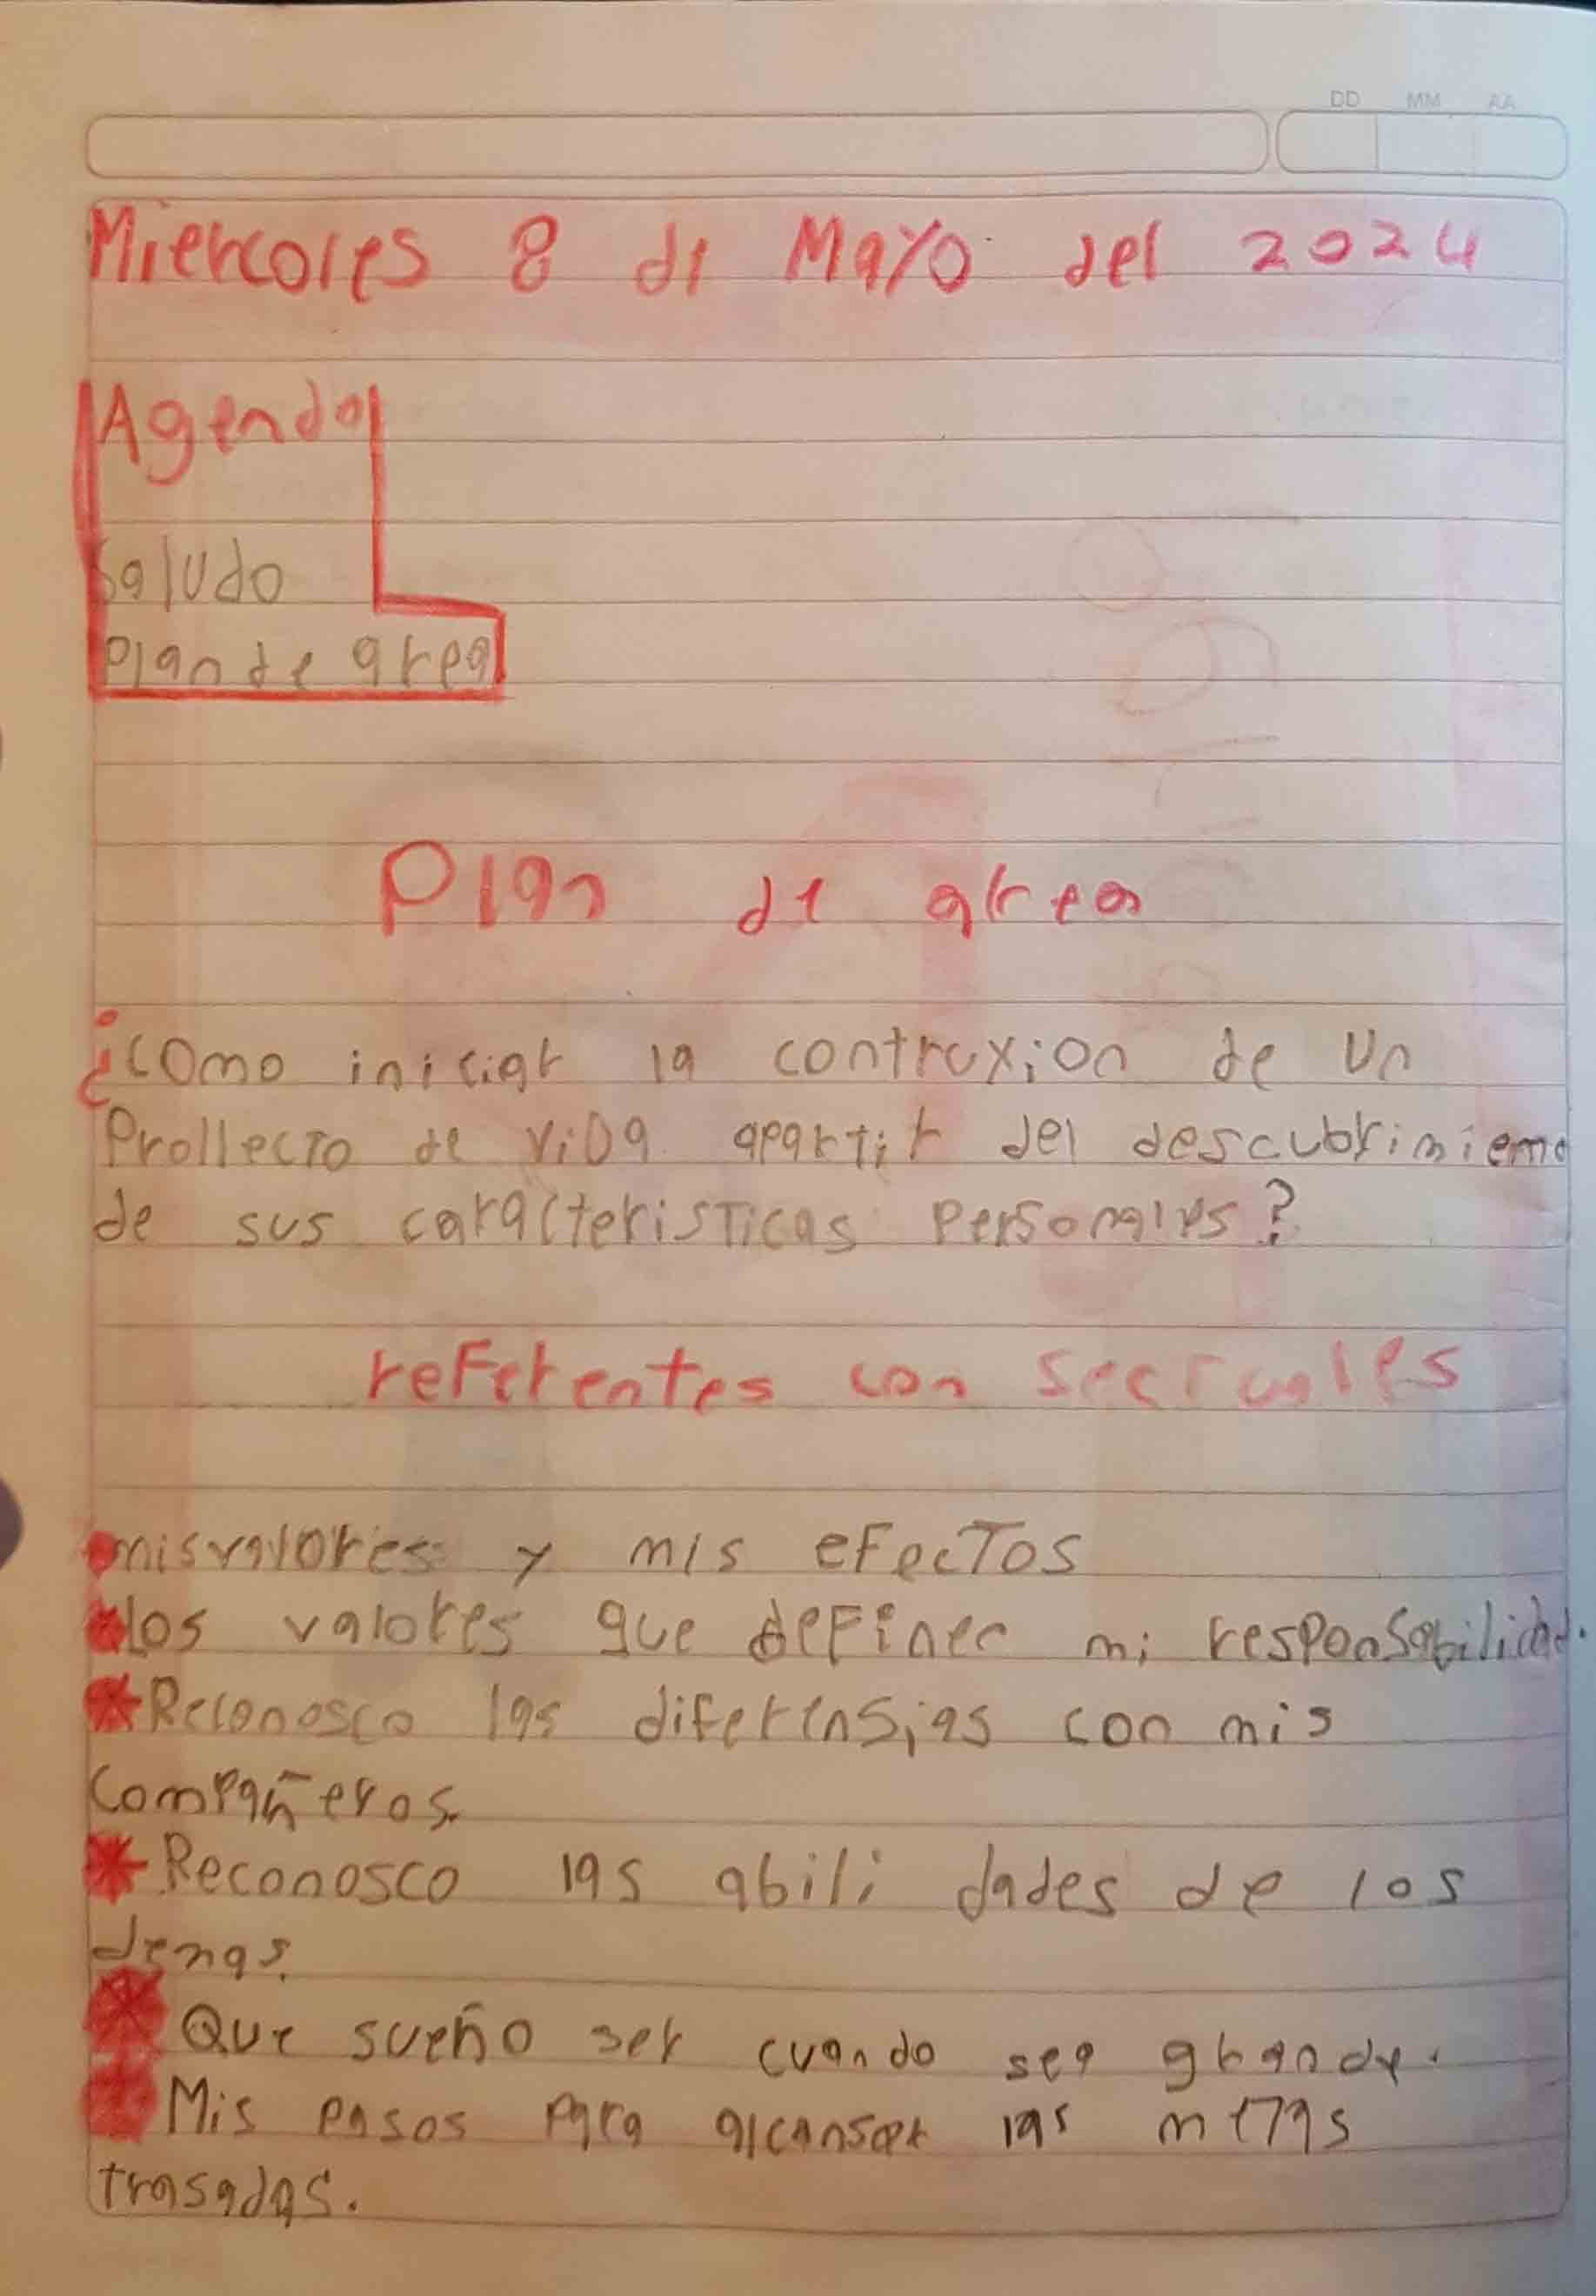 DD MM AA
Miercoles 8 de Mayo del 2024
Agenda
Saludo
Plan de area
Plan de area
¿como iniciar la contruxion de un
Prollecto de viDa apartir del descubrimieno
de sus caracteristicas Personales?
reFerentes con sectuales
misvalores y mis eFectos
los valores que deFinen mi responsabilidad.
*Reconosco las diferensias con mis
compañeros.
*Reconosco las abili dades de los
demas.
*Que sueño ser cuando sea grande.
*Mis pasos para alcansar las metas
trasadas.